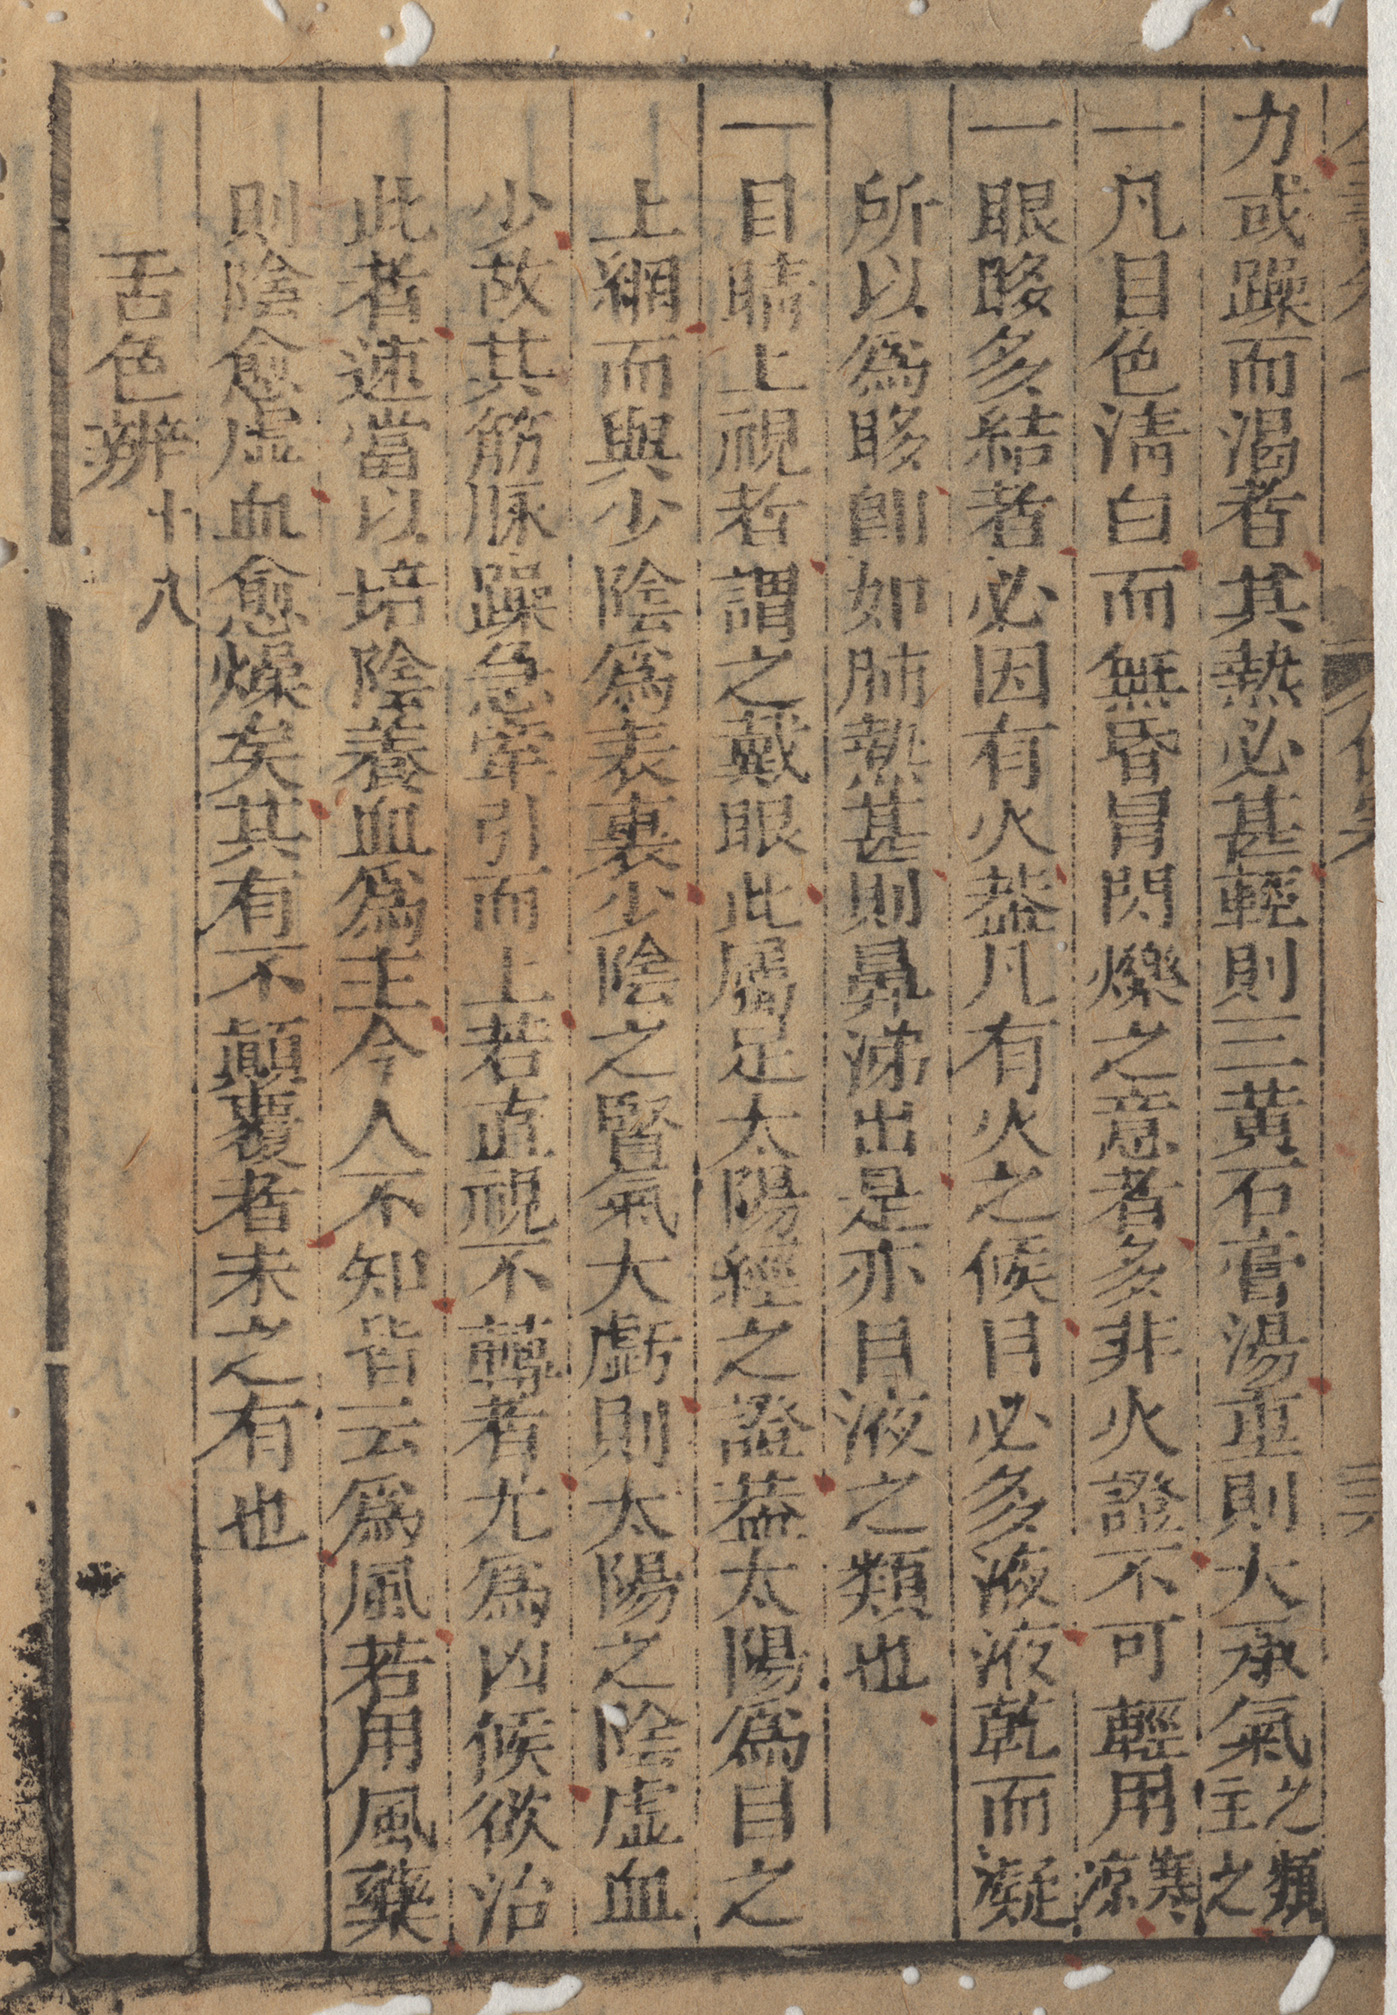 力或躁而渴者其熱必甚輕則三黄石膏湯重則大承氣之類主之
一凡目色淸白而無昏冒閃爍之意者多非火證不可輕用寒凉
一眼眵多結者必因有火葢凡有火之候目必多液液乾而凝
所以為眵卽如肺熱甚則鼻涕出是亦目液之類也
一目睛上視者謂之戴眼此屬足太陽經之證葢太陽爲目之
上網而與少陰爲表裏少陰之腎氣大虧則太陽之陰虛血
少故其筋脉躁急牽引而上若直視不轉者尤爲凶候欲治
此者速當以培陰養血爲主今人不知皆云爲風若用風藥
則陰愈虛血愈燥矣其有不顛覆者未之有也
舌色辨 十八